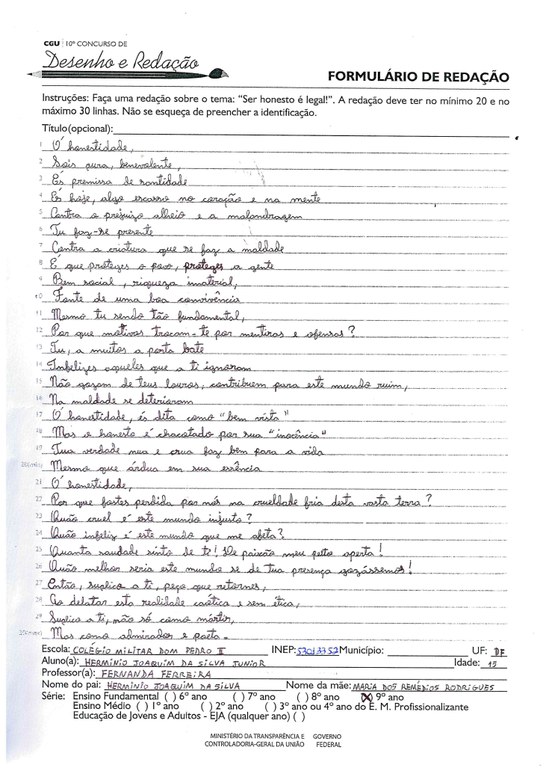 CGU 10º CONCURSO DE
Desenho e Redação
FORMULÁRIO DE REDAÇÃO
Instruções: Faça uma redação sobre o tema: "Ser honesto é legal!". A redação deve ter no mínimo 20 e no
máximo 30 linhas. Não se esqueça de preencher a identificação.
Título(opcional):
1 Ó honestidade,
2 Sois pura, benevolente,
3 És premissa de santidade
4 És hoje, algo escasso no coração e na mente
5 Contra o prejuízo alheio e a malandragem
6 Tu faz-se presente
7 Contra a criatura que se faz a maldade
8 É que proteges o povo, proteges a gente
9 Bem social, riqueza imaterial,
10 Fonte de uma boa convivência
11 Mesmo tu sendo tão fundamental,
12 Por que motivos trocam-te por mentiras e ofensas?
13 Tu, a muitos a porta bate
14 Infelizes aqueles que a ti ignoram
15 Não gozam de teus louros, contribuem para este mundo ruim,
16 Na maldade se deterioram
17 Ó honestidade, és dita como "bem vista"
18 Mas o honesto é chacotado por sua "inocência"
19 Tua verdade nua e crua faz bem para a vida
20 Mesmo que árdua em sua essência
21 Ó honestidade,
22 Por que fostes perdida por nós na crueldade fria desta vasta terra?
23 Quão cruel é este mundo injusto?
24 Quão infeliz é este mundo que me afeta?
25 Quanta saudade sinto de ti! De paixão meu peito aperta!
26 Quão melhor seria este mundo se de tua presença gozássemos!
27 Então, suplico a ti, peço que retornes,
28 Ao delatar esta realidade caótica e sem ética,
29 Suplico a ti, não só como mártir,
Mas como admirador e poeta.
Escola: COLÉGIO MILITAR DOM PEDRO II INEP: 53013352 Município: UF: DF
Aluno(a): HERMINIO JOAQUIM DA SILVA JUNIOR Idade: 15
Professor(a): FERNANDA FERREIRA
Nome do pai: HERMÍNIO JOAQUIM DA SILVA Nome da mãe: MARIA DOS REMÉDIOS RODRIGUES
Série: Ensino Fundamental ( ) 6º ano ( ) 7º ano ( ) 8º ano (X) 9º ano
Ensino Médio ( ) 1º ano ( ) 2º ano ( ) 3º ano ou 4º ano do E. M. Profissionalizante
Educação de Jovens e Adultos - EJA (qualquer ano) ( )
MINISTÉRIO DA TRANSPARÊNCIA E GOVERNO
CONTROLADORIA-GERAL DA UNIÃO FEDERAL